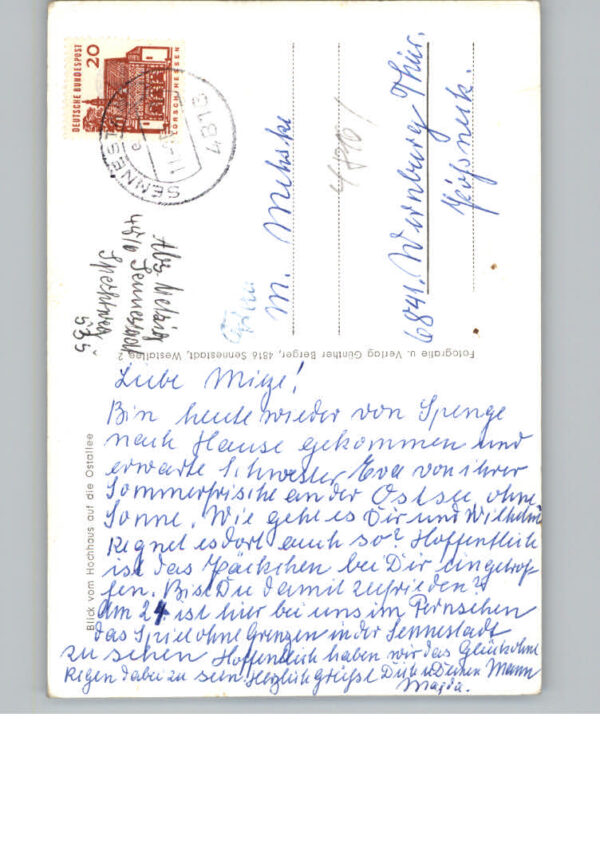 DEUTSCHE BUNDESPOST
20
LORSCH/HESSEN
SENNESTADT
4816
Abs. Metzig
4816 Sennestadt
Spechtweg
535
Frau
M. Mehske
4816!
6841. Wernburg Thür.
Pößneck.
Fotografie u. Verlag Günther Berger, 4816 Sennestadt, Westallee 2
Blick vom Hochhaus auf die Ostallee
Liebe Mieze!
Bin heute wieder von Spenge
nach Hause gekommen und
erwarte Schwester Eva von ihrer
Sommerfrische an der Ostsee, ohne
Sonne. Wie geht es Dir und Wilhelm
Regnet es dort auch so? Hoffentlich
ist das Päckchen bei Dir eingetrof-
fen. Bist Du damit zufrieden?
Am 24. ist hier bei uns im Fernsehen
das Spiel ohne Grenzen in der Sennestadt
zu sehen Hoffentlich haben wir das Glück ohne
Regen dabei zu sein. Herzlich grüßt Dich u Deinen Mann
Magda.